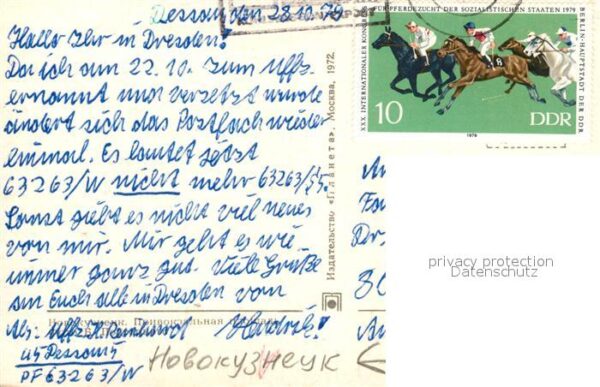 Dessau, den 28.10.79
Hallo Ihr in Dresden!
Da ich am 22.10. zum Uffz.
ernannt und versetzt wurde
ändert sich das Postfach wieder
einmal. Es lautet jetzt
63263/W nicht mehr 63263/
Sonst giebt es nicht viel neues
von mir. Mir geht es wie
immer ganz gut. Viele Grüße
an Euch alle in Dresden von
Abs: Uffz. Hendrik!
45 Dessau 5
PF 63263/W
Новокузнецк
Издательство «Планета». Москва, 1972.
Новокузнецк. Привокзальная
XXX. INTERNATIONALER KONGRESS FÜR PFERDEZUCHT DER SOZIALISTISCHEN STAATEN 1979
BERLIN-HAUPTSTADT DER DDR
8
10
DDR
1979
privacy protection
Datenschutz